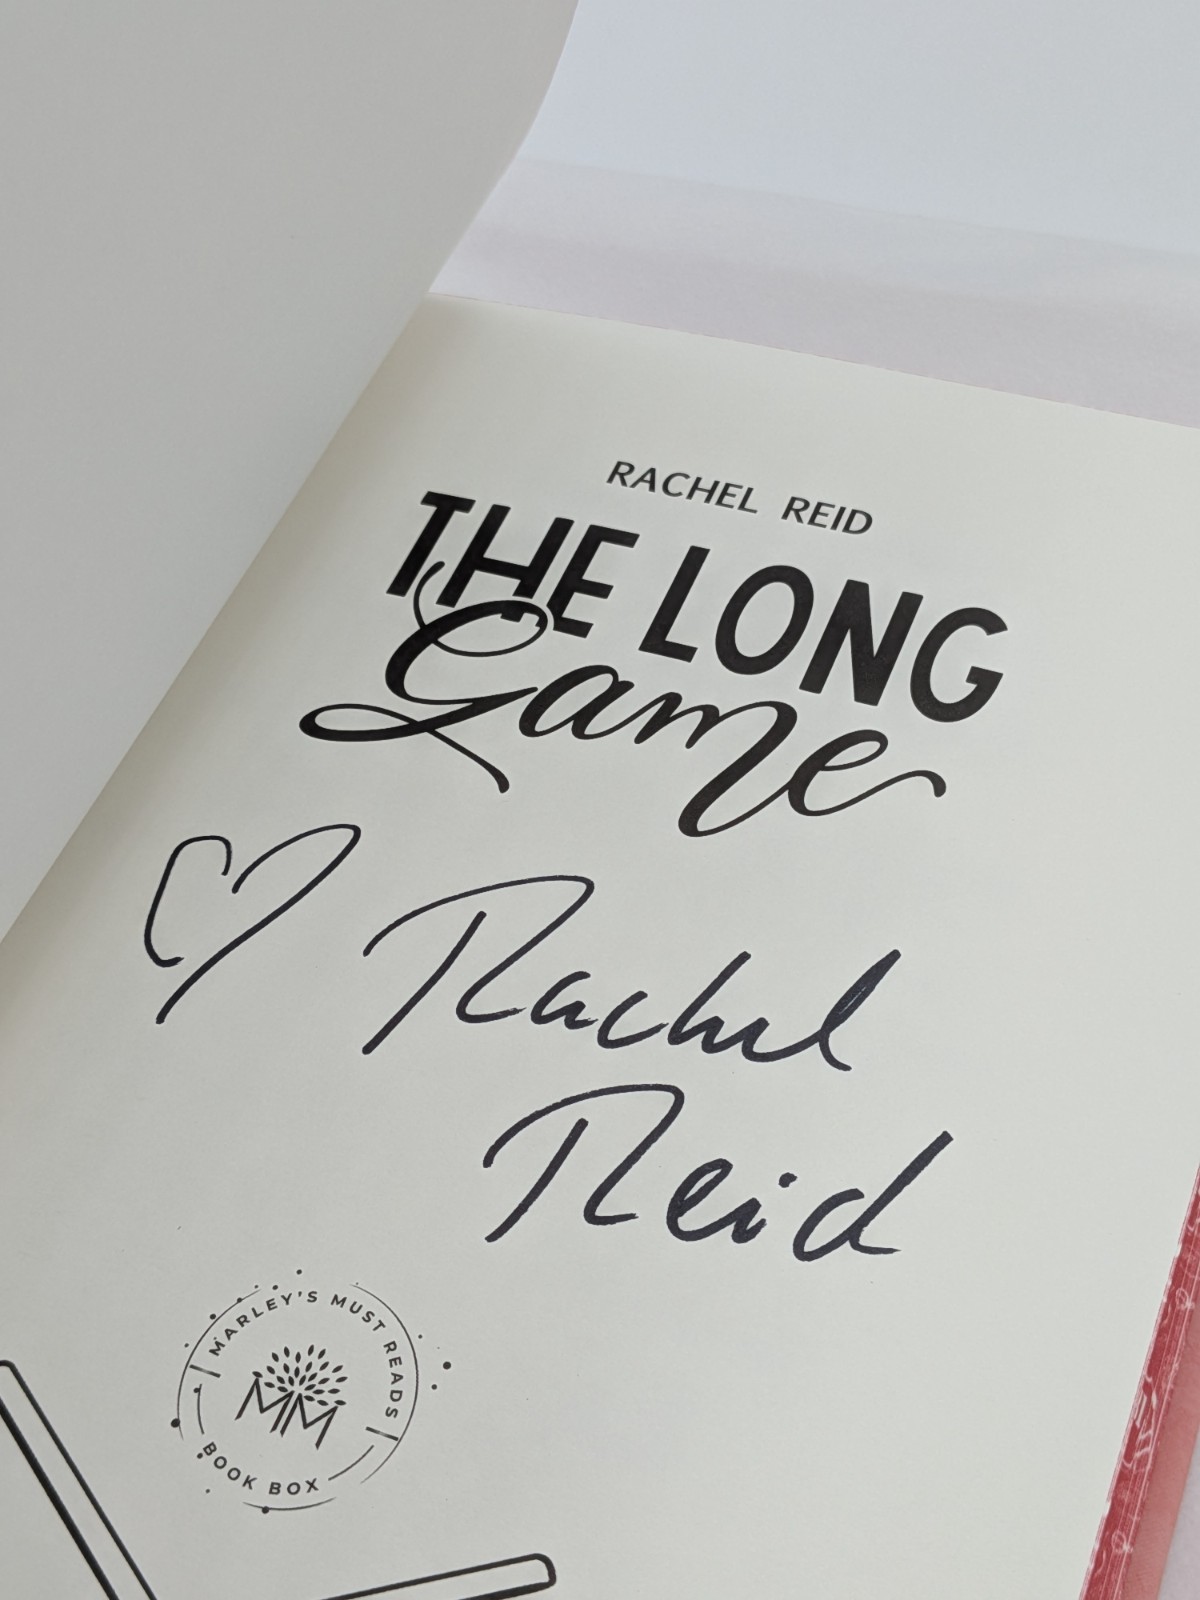 RACHEL REID
THE LONG
Game
♡ Rachel
Reid
MARLEY'S MUST READS
MM
BOOK BOX